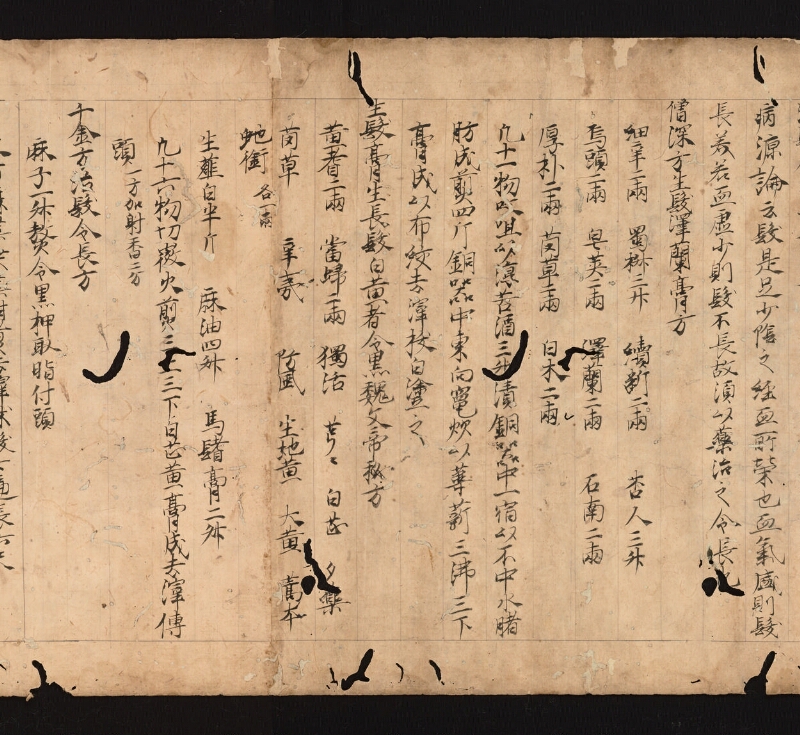 病源論云髮是足少陰之経血所榮也血氣盛則髮
長美若血虚少則髮不長故湏以藥治之令長
僧深方生髮澤蘭膏方
細辛二兩 蜀椒三升 續斷二兩 杏人三升
烏頭二兩 皂莢二兩 澤蘭二兩 石南二兩
厚朴二兩 茵草二兩 白术二兩
凡十一物㕮咀以淳苦酒三升漬銅器中一宿以不中水猪
肪成煎四斤銅器中東向竃炊以葦薪三沸三下
膏成以布絞去滓拔白塗之
生髮膏生長髮白黄者令黒魏文帝秘方
黄耆二兩 當歸二兩 獨活 芎 白芷 夕藥
茵草 辛夷 防風 生地黄 大黄 藁本
虵銜 各一兩
生薤白半斤 麻油四升 馬鬐膏二升
凡十六物切微火煎三上三下白芷黄膏成去滓傅
頭 一方加射香二方
千金方治髮令長方
麻子一升熬令黒押取脂付頭